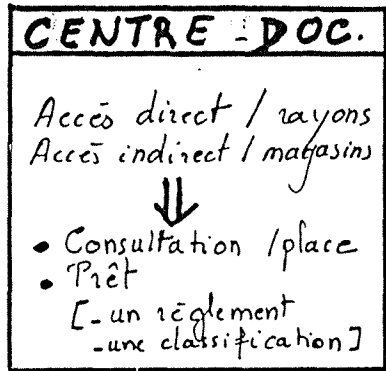 CENTRE-DOC.
Accès direct / rayons
Accès indirect / magasins
⇓
• Consultation / place
• Prêt
[- un règlement
- une classification]